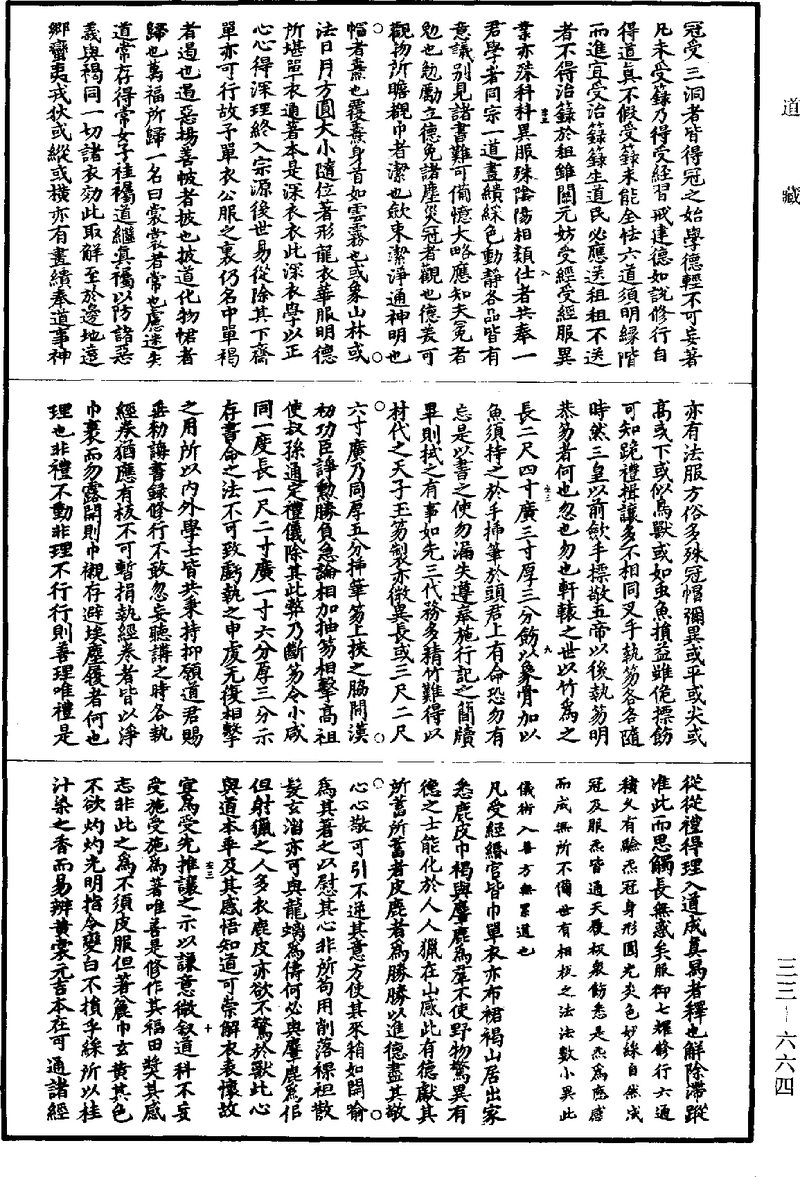 道藏
三三—六六四
冠受三洞者皆得冠之始學德輕不可妄著
凡未受籙乃得受經習戒建德如說修行自
得道真不假受籙未能全怯六道須明緣階
而進宜受治籙籙生道民必應送租租不送
者不得治籙於租雖闕元妨受經受經服異
業亦殊科科異服殊陰陽相類仕者共奉一
君學者同宗一道畫繢綵色動靜各品皆有
意議別見諸書難可備憶大略應知夫冕者
勉也勉勵立德免諸塵災冠者觀也德美可
觀物所瞻覩巾者潔也歛束潔淨通神明也
帽者燾也覆燾身首如雲霧也或象山林或
法日月方圓大小隨位著形龍衣華服明德
所堪單衣通著本是深衣衣此深衣學以正
心心得深理終入宗源後世易從除其下齊
單亦可行故予單衣公服之裏仍名中單褐
者遏也遏惡揚善帔者披也披道化物帬者
歸也萬福所歸一名曰裳裳者常也應迷失
道常存得常女子袿襡道繼真襡以防諸惡
義與褐同一切諸衣効此取解至於邊地遠
鄉蠻夷戎狄或縱或橫亦有畫繢奉道事神
亦有法服方俗多殊冠帽彌異或平或尖或
高或下或似鳥獸或如虫魚損益雖侻摽飾
可知跪禮揖讓多不相同叉手執笏各各隨
時然三皇以前歛手摽敬五帝以後執笏明
恭笏者何也忽也勿也軒轅之世以竹為之
長二尺四寸廣三寸厚三分飾以象骨加以
魚須持之於手插筆於頭君上有命恐勿有
忘是以書之使勿漏失遵奉施行記之簡牘
畢則拭之有事如先三代務多精竹難得以
材代之天子王笏製亦微異長或三尺二尺
六寸廣乃同厚五分插筆笏上挾之脇間漢
初功臣諍勳勝負急論相加抽笏相擊高祖
使叔孫通定禮儀除其此弊乃斷笏令小咸
同一度長一尺二寸廣一寸六分厚三分示
存書命之法不可致虧執之申虔元復相擊
之用所以內外學士皆共秉持抑願道君賜
垂勑誨書録修行不敢忽妄聽講之時各執
經卷猶應有板不可暫捐執經卷者皆以淨
巾裹而勿露開則巾襯存避埃塵履者何也
理也非禮不動非理不行行則善理唯禮是
從從禮得理入道成真舄者釋也解除滯蹤
准此而思觸長無惑矣服御七耀修行六通
積久有驗炁冠身形圓光炎色妙綵自然成
冠及服炁皆通天履板衆飾悉是炁為應感
而成無所不備世有相板之法法數小異此
儀術入善方無累道也
凡受經緡官皆巾單衣亦布裙褐山居出家
悉鹿皮巾褐與麞鹿為羣不使野物驚異有
德之士能化於人人獵在山感此有德獻其
所蓄所蓄者皮鹿者為勝勝以進德盡其敬
心心敬可引不逆其意方使其來稍如開喻
為其著之以慰其心非所苟用削落裸袒散
髮玄淄亦可與龍螭為儔何必與麞鹿為侣
但射獵之人多衣鹿皮亦欲不驚於獸此心
與道本乖及其感悟知道可崇解衣表懷故
宜為受先推讓之示以謙意微叙道科不妄
受施受施為著唯善是修作其福田獎其感
志非此之為不須皮服但著麄巾玄黄其色
不欲灼灼光明指令變白不損乎綵所以桂
汁染之香而易辨黄裳元吉本在可通諸經